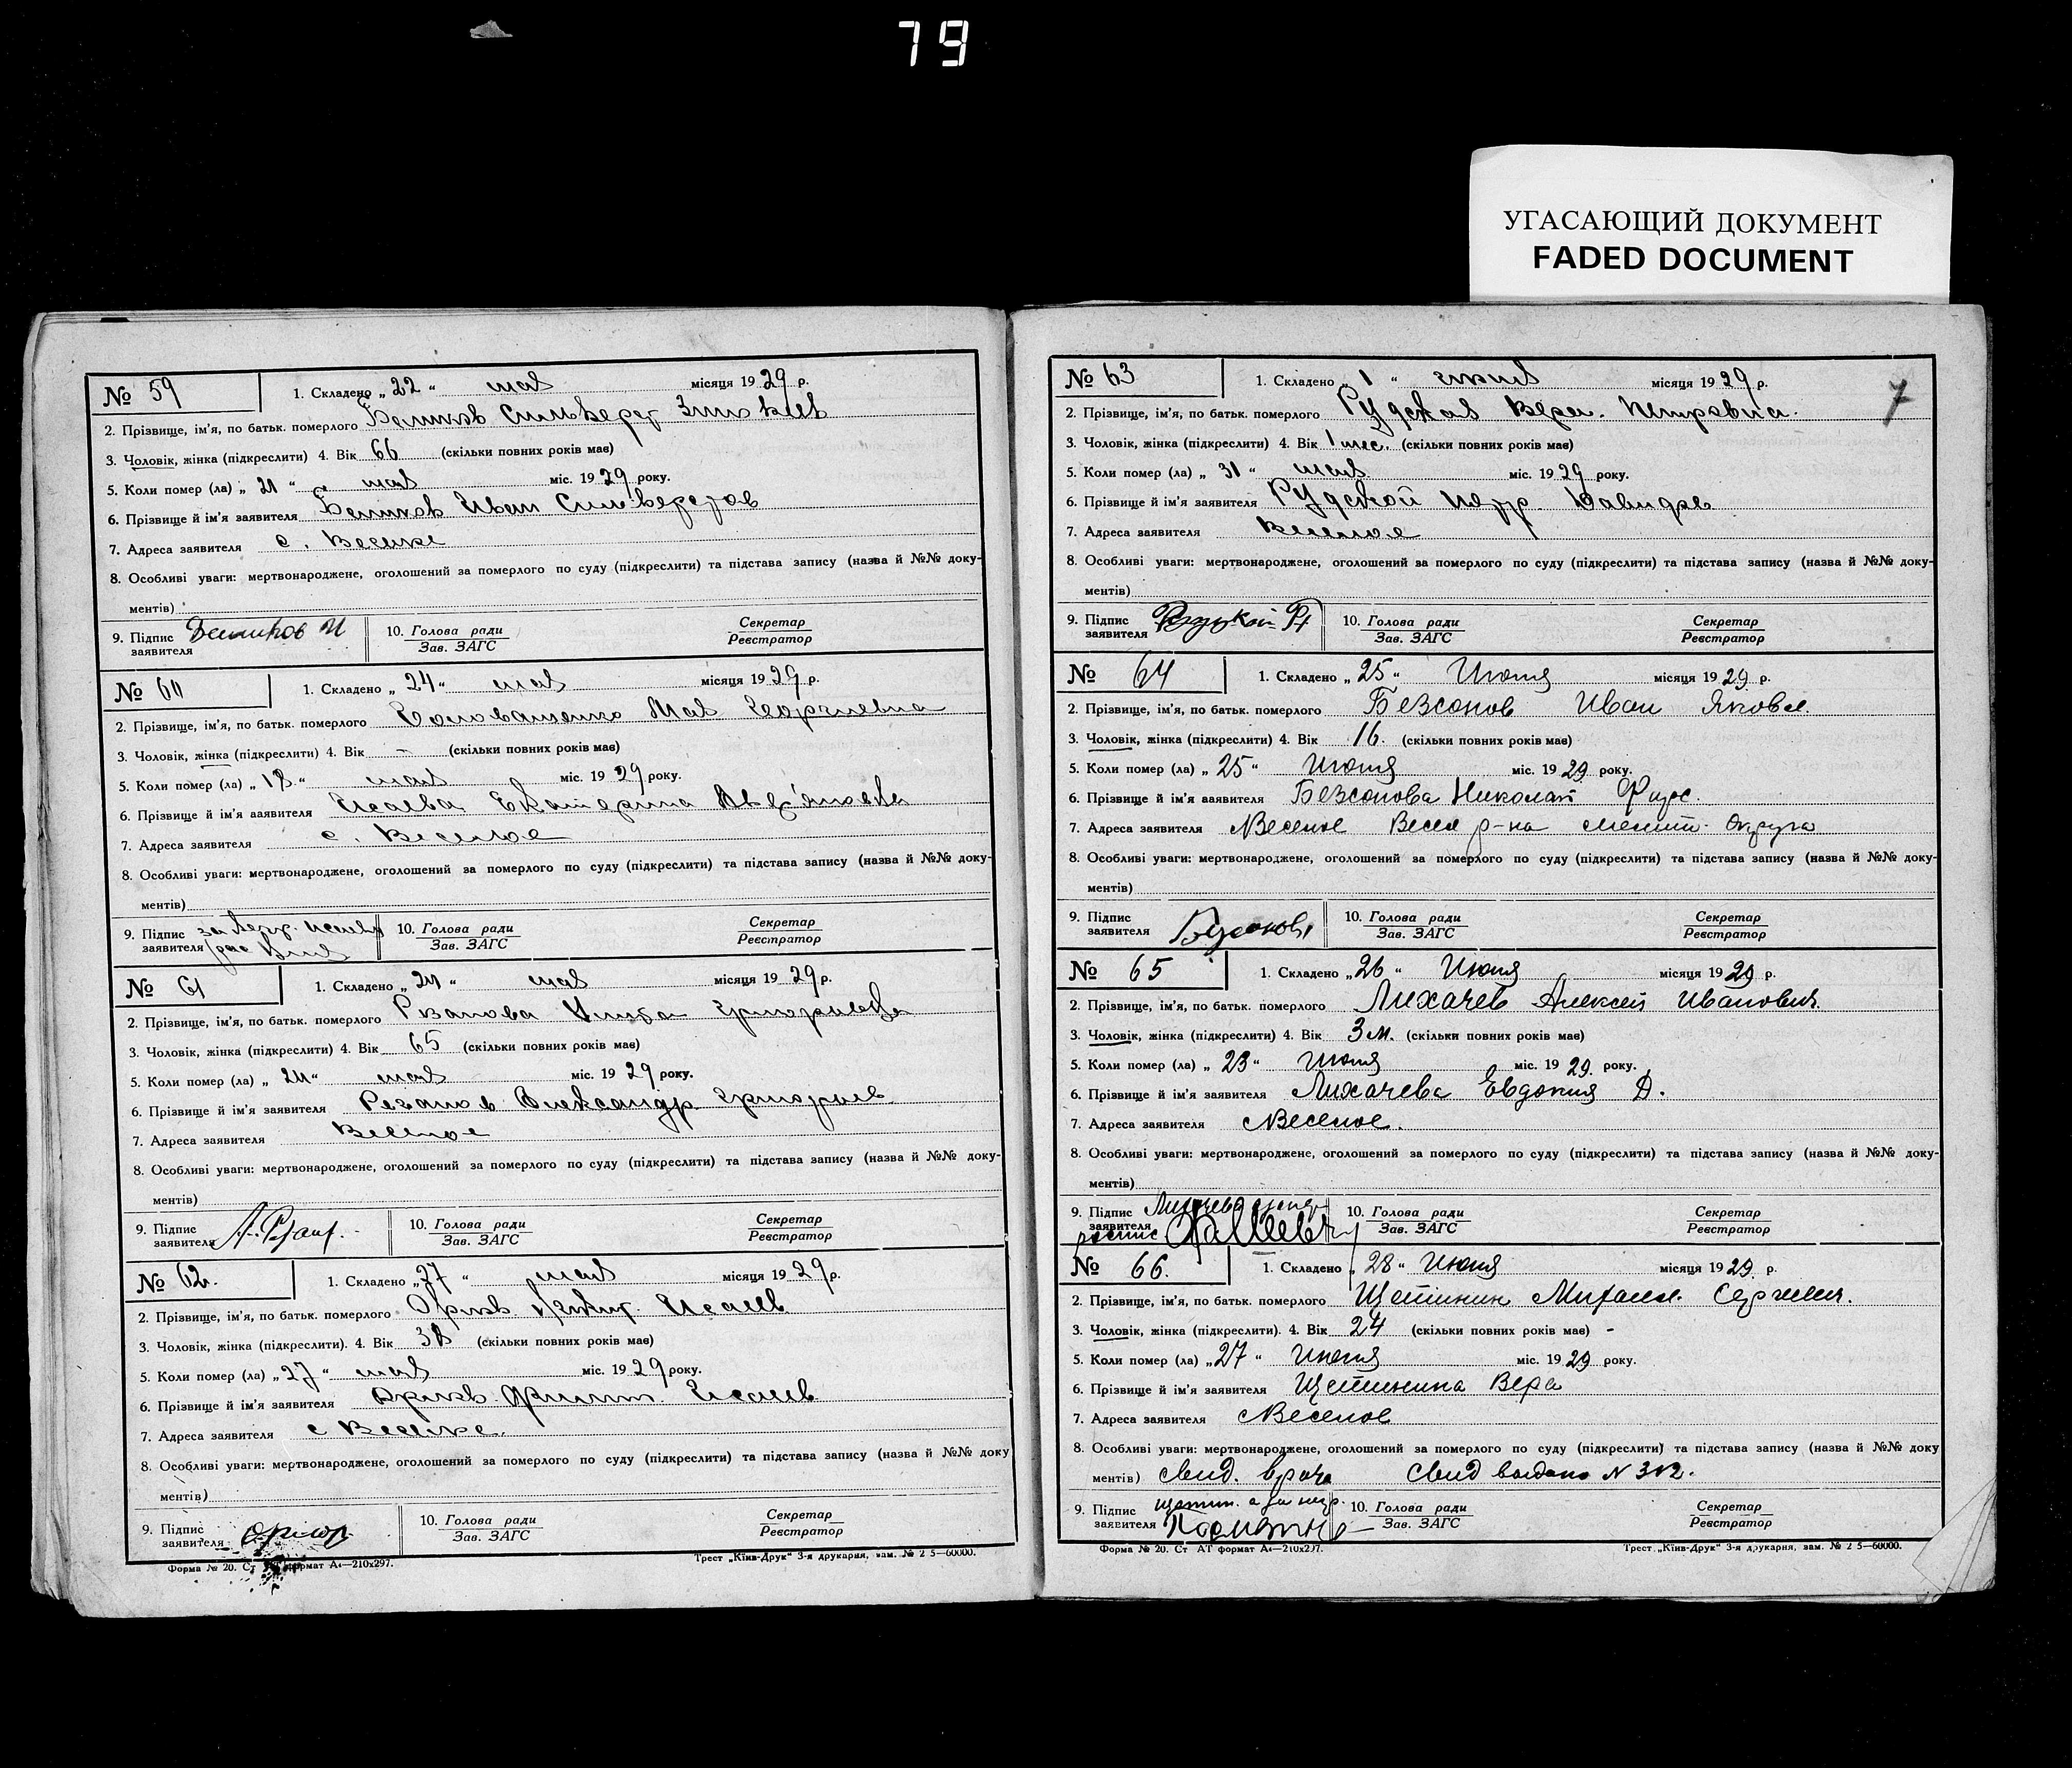 79
УГАСАЮЩИЙ ДОКУМЕНТ
FADED DOCUMENT
№ 59
1. Складено „ 22 “ мая місяця 19 29 р.
2. Прізвище, ім'я, по батьк. померлого
3. Чоловік, жінка (підкреслити) 4. Вік 66 (скільки повних років має)
5. Коли помер (ла) „ 21 “ мая міс. 19 29 року.
6. Прізвище й ім'я заявителя Иван
7. Адреса заявителя с.
8. Особливі уваги: мертвонароджене, оголошений за померлого по суду (підкреслити) та підстава запису (назва й №№ доку-
ментів)
9. Підпис заявителя
10. Голова ради Зав. ЗАГС
Секретар Реєстратор
№ 60
1. Складено „ 24 “ мая місяця 19 29 р.
2. Прізвище, ім'я, по батьк. померлого Георгиевна
3. Чоловік, жінка (підкреслити) 4. Вік – (скільки повних років має)
5. Коли помер (ла) „ 18 “ мая міс. 19 29 року.
6. Прізвище й ім'я заявителя Исаева Екатерина
7. Адреса заявителя с. Веселое
8. Особливі уваги: мертвонароджене, оголошений за померлого по суду (підкреслити) та підстава запису (назва й №№ доку-
ментів)
9. Підпис заявителя
10. Голова ради Зав. ЗАГС
Секретар Реєстратор
№ 61
1. Складено „ 24 “ мая місяця 19 29 р.
2. Прізвище, ім'я, по батьк. померлого Рзанова
3. Чоловік, жінка (підкреслити) 4. Вік 65 (скільки повних років має)
5. Коли помер (ла) „ “ мая міс. 19 29 року.
6. Прізвище й ім'я заявителя Резанов Александр
7. Адреса заявителя Веселое
8. Особливі уваги: мертвонароджене, оголошений за померлого по суду (підкреслити) та підстава запису (назва й №№ доку-
ментів)
9. Підпис заявителя
10. Голова ради Зав. ЗАГС
Секретар Реєстратор
№ 62
1. Складено „ 27 “ мая місяця 19 29 р.
2. Прізвище, ім'я, по батьк. померлого
3. Чоловік, жінка (підкреслити). 4. Вік 38 (скільки повних років має)
5. Коли помер (ла) „ 27 “ мая міс. 19 29 року.
6. Прізвище й ім'я заявителя
7. Адреса заявителя с
8. Особливі уваги: мертвонароджене, оголошений за померлого по суду (підкреслити) та підстава запису (назва й №№ доку
ментів)
9. Підпис заявителя
10. Голова ради Зав. ЗАГС
Секретар Реєстратор
Форма № 20. Ст формат А4—210х297.
Трест „Київ-Друк“ 3-я друкарня, зам. № 2 5—60000.
№ 63
1. Складено „ 1 “ місяця 19 29 р.
7
2. Прізвище, ім'я, по батьк. померлого Рудская Вера Петровна.
3. Чоловік, жінка (підкреслити) 4. Вік 1 мес. (скільки повних років має)
5. Коли помер (ла) „ 31 “ мая міс. 19 29 року.
6. Прізвище й ім'я заявителя Рудской Петр
7. Адреса заявителя Веселое
8. Особливі уваги: мертвонароджене, оголошений за померлого по суду (підкреслити) та підстава запису (назва й №№ доку-
ментів)
9. Підпис заявителя
10. Голова ради Зав. ЗАГС
Секретар Реєстратор
№ 64
1. Складено „ 25 “ Июня місяця 19 29 р.
2. Прізвище, ім'я, по батьк. померлого Безсонов Иван Яковл.
3. Чоловік, жінка (підкреслити) 4. Вік 16. (скільки повних років має)
5. Коли помер (ла) „ 25 “ Июня міс. 19 29 року.
6. Прізвище й ім'я заявителя Безсонова Николай
7. Адреса заявителя с Веселое Весел р-на мелит. округа
8. Особливі уваги: мертвонароджене, оголошений за померлого по суду (підкреслити) та підстава запису (назва й №№ доку-
ментів)
9. Підпис заявителя
10. Голова ради Зав. ЗАГС
Секретар Реєстратор
№ 65
1. Складено „ 26 “ Июня місяця 19 29 р.
2. Прізвище, ім'я, по батьк. померлого Лихачев Алексей Иванович.
3. Чоловік, жінка (підкреслити) 4. Вік 3 м. (скільки повних років має)
5. Коли помер (ла) „ 23 “ Июня міс. 19 29 року.
6. Прізвище й ім'я заявителя Лихачева Евдокия Д.
7. Адреса заявителя с Веселое.
8. Особливі уваги: мертвонароджене, оголошений за померлого по суду (підкреслити) та підстава запису (назва й №№ доку-
ментів)
9. Підпис заявителя
10. Голова ради Зав. ЗАГС
Секретар Реєстратор
№ 66.
1. Складено „ 28 “ Июня місяця 19 29 р.
2. Прізвище, ім'я, по батьк. померлого Щетинин Михаил Сергеев.
3. Чоловік, жінка (підкреслити). 4. Вік 24 (скільки повних років має) -
5. Коли помер (ла) „ 27 “ Июня міс. 19 29 року.
6. Прізвище й ім'я заявителя Щетинина Вера
7. Адреса заявителя с Веселое
8. Особливі уваги: мертвонароджене, оголошений за померлого по суду (підкреслити) та підстава запису (назва й №№ доку
ментів) свид. врача Свид выдано N 312.
9. Підпис заявителя
10. Голова ради Зав. ЗАГС
Секретар Реєстратор
Форма № 20. Ст АТ формат А4—210х297.
Трест „Київ-Друк“ 3-я друкарня, зам. № 2 5—60000.